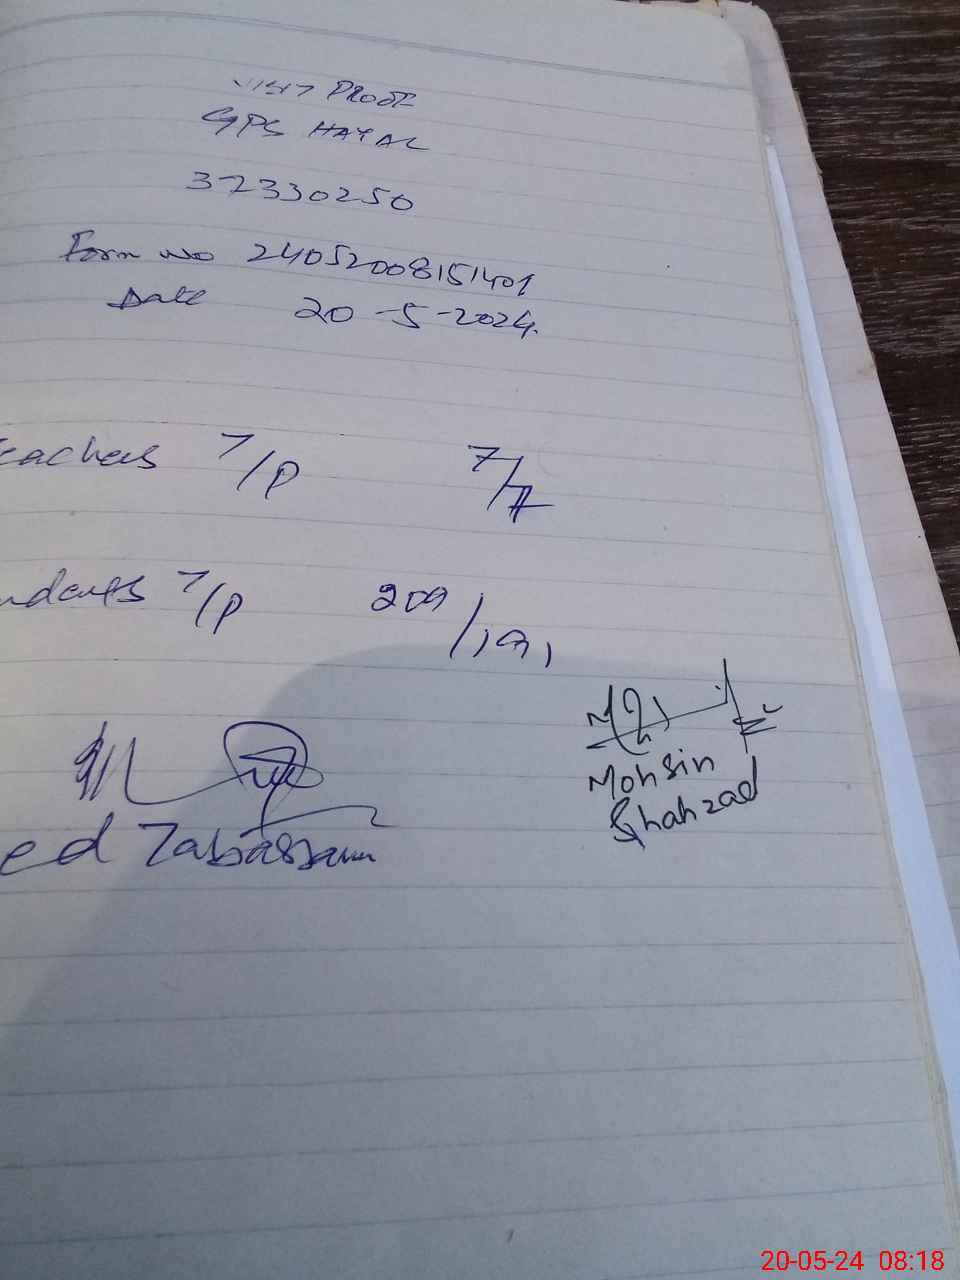 VISIT PROOF
GPS HAYAL
37330250
Form no 24052008151401
Date 20-5-2024.
eachers T/P 7/7
udents T/P 209/191
ed Tabassam
Mohsin
Shahzad
20-05-24 08:18